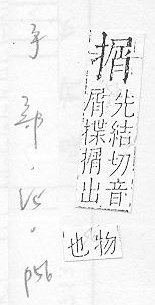 先結切音
屑揲出
物
也
手部
p56